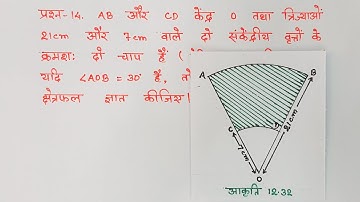 प्रश्न-14. AB और CD केंद्र O तथा त्रिज्याओं
21cm और 7cm वाले दो संकेंद्रीय वृत्तों के
क्रमशः दो चाप हैं
यदि ∠AOB = 30° है, तो
क्षेत्रफल ज्ञात कीजिए।
A
B
C
7cm
21cm
O
आकृति 12.32